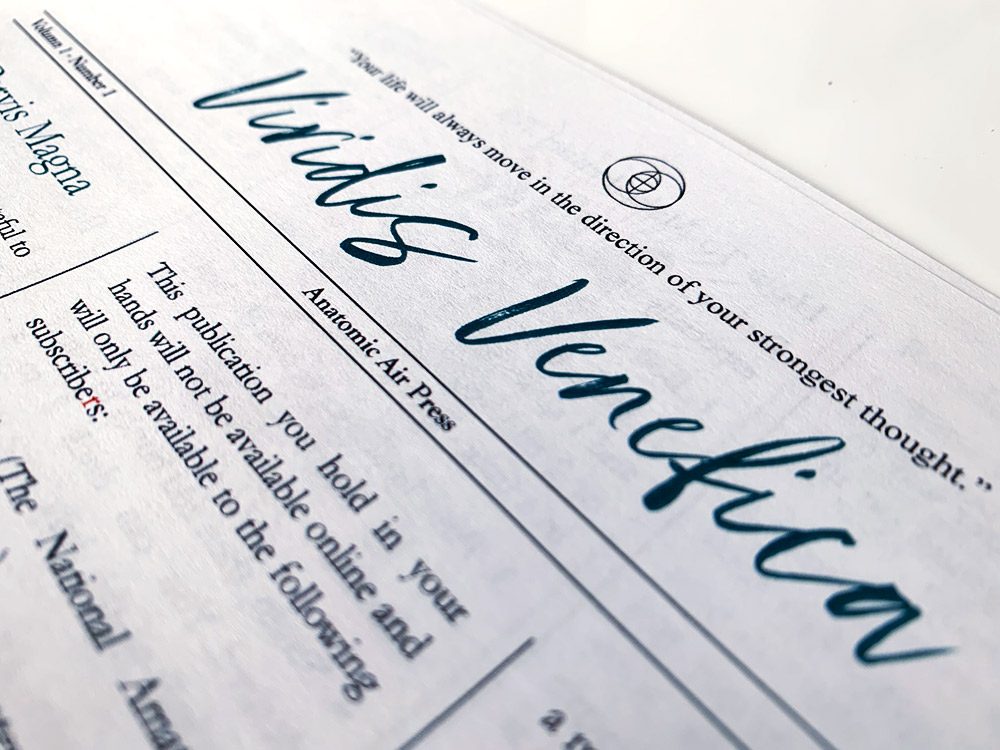 "Your life will always move in the direction of your strongest thought."
Viridis Venefica
Volume 1 - Number 1
Anatomic Air Press
Parvis Magna
to
This publication you hold in your
hands will not be available online and
will only be available to the following
subscribers:
(The National
a